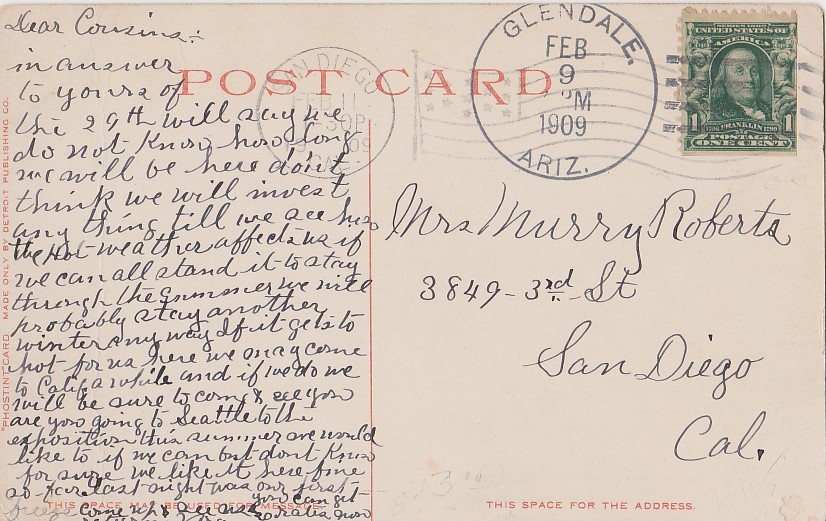 Dear Cousins:-
in answer
to yours of
the 29th will say we
do not know how long
we will be here don't
think we will invest
any thing till we see how
the hot weather affects us if
we can all stand it to stay
through the summer we will
probably stay another
winter any way If it gets to
hot for us here we may come
to Calif a while and if we do we
will be sure to come & see you
are you going to Seattle to the
exposition this summer we would
like to if we can but dont know
for sure we like it here fine
so far last night was our first
freeze come up & see us you can get
rates now
POST CARD
SAN DIEGO
FEB 11
30P
1909
CAL.
GLENDALE,
FEB
9
PM
1909
ARIZ.
SERIES 1902
UNITED STATES OF
AMERICA
1
1706 FRANKLIN 1790
POSTAGE
ONE CENT
Mrs Murry Roberts
3849 - 3rd - St
San Diego
Cal.
3.00
THIS SPACE MAY BE USED FOR MESSAGE.
THIS SPACE FOR THE ADDRESS.
"PHOSTINT" CARD MADE ONLY BY DETROIT PUBLISHING CO.